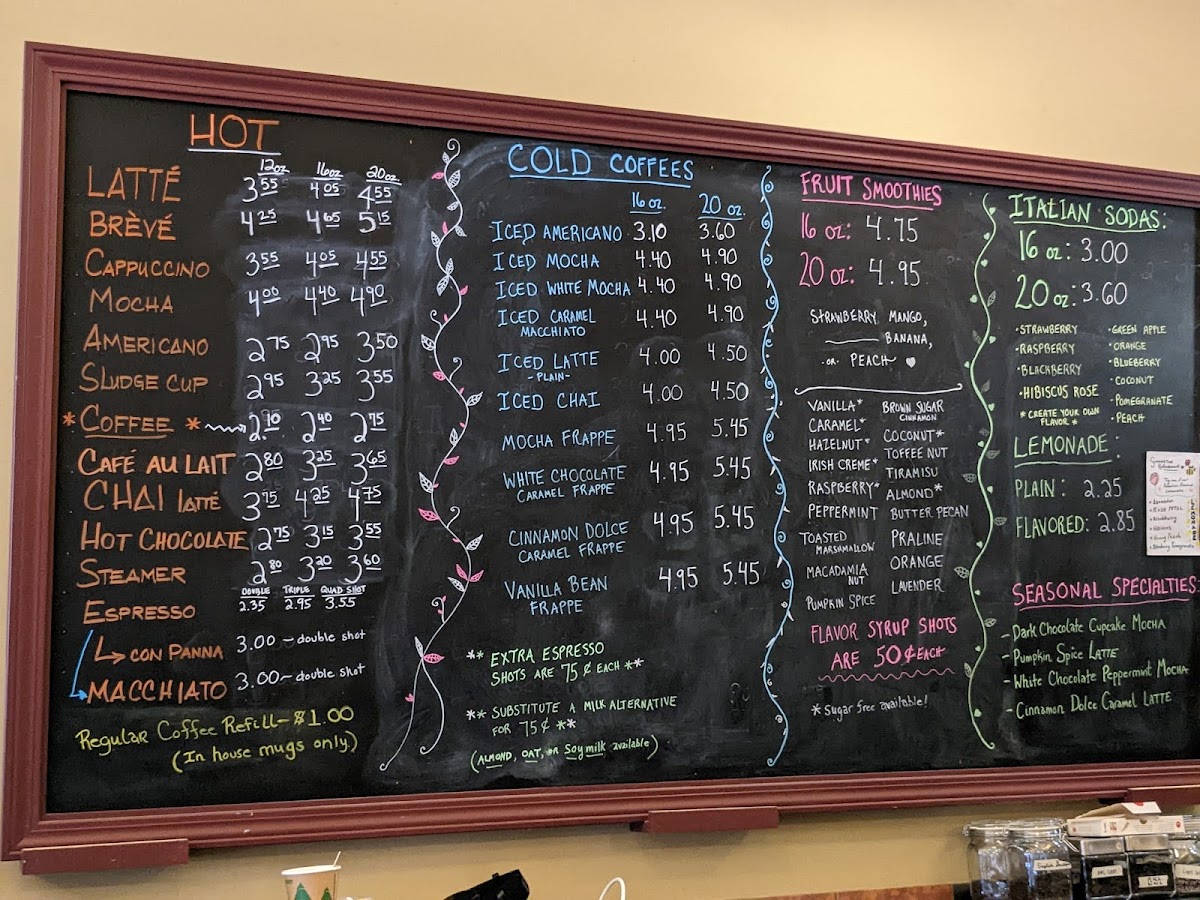 HOT
12oz 16oz 20oz
LATTÉ 3.55 4.05 4.55
BRÈVÉ 4.25 4.65 5.15
CAPPUCCINO 3.55 4.05 4.55
MOCHA 4.00 4.40 4.90
AMERICANO 2.75 2.95 3.50
SLUDGE CUP 2.95 3.25 3.55
* COFFEE * 2.10 2.40 2.75
CAFÉ AU LAIT 2.80 3.25 3.65
CHAI latté 3.75 4.25 4.75
HOT CHOCOLATE 2.75 3.15 3.55
STEAMER 2.80 3.20 3.60
DOUBLE TRIPLE QUAD SHOT
ESPRESSO 2.35 2.95 3.55
CON PANNA 3.00 - double shot
MACCHIATO 3.00 - double shot
Regular Coffee Refill - $1.00
(In house mugs only.)
COLD COFFEES
16 oz. 20 oz.
ICED AMERICANO 3.10 3.60
ICED MOCHA 4.40 4.90
ICED WHITE MOCHA 4.40 4.90
ICED CARAMEL
MACCHIATO 4.40 4.90
ICED LATTE 4.00 4.50
-PLAIN-
ICED CHAI 4.00 4.50
MOCHA FRAPPE 4.95 5.45
WHITE CHOCOLATE 4.95 5.45
CARAMEL FRAPPE
CINNAMON DOLCE 4.95 5.45
CARAMEL FRAPPE
VANILLA BEAN 4.95 5.45
FRAPPE
** EXTRA ESPRESSO
SHOTS ARE 75¢ EACH **
** SUBSTITUTE A MILK ALTERNATIVE
FOR 75¢ **
(ALMOND, OAT, or Soy milk available)
FRUIT SMOOTHIES
16 oz: 4.75
20 oz: 4.95
STRAWBERRY, MANGO,
BANANA,
-or- PEACH
VANILLA* BROWN SUGAR
CINNAMON
CARAMEL* COCONUT*
HAZELNUT* TOFFEE NUT
IRISH CREME* TIRAMISU
RASPBERRY* ALMOND*
PEPPERMINT BUTTER PECAN
TOASTED PRALINE
MARSHMALLOW
MACADAMIA ORANGE
NUT
PUMPKIN SPICE LAVENDER
FLAVOR SYRUP SHOTS
ARE 50¢ EACH
*Sugar free available!
ITALIAN SODAS:
16 oz: 3.00
20 oz: 3.60
•STRAWBERRY •GREEN APPLE
•RASPBERRY •ORANGE
•BLACKBERRY •BLUEBERRY
•HIBISCUS ROSE •COCONUT
* CREATE YOUR OWN •POMEGRANATE
FLAVOR * •PEACH
LEMONADE:
PLAIN: 2.25
FLAVORED: 2.85
SEASONAL SPECIALTIES:
- Dark Chocolate Cupcake MOCHA
- Pumpkin Spice LATTE
- White Chocolate Peppermint MOCHA
- Cinnamon Dolce Caramel LATTE